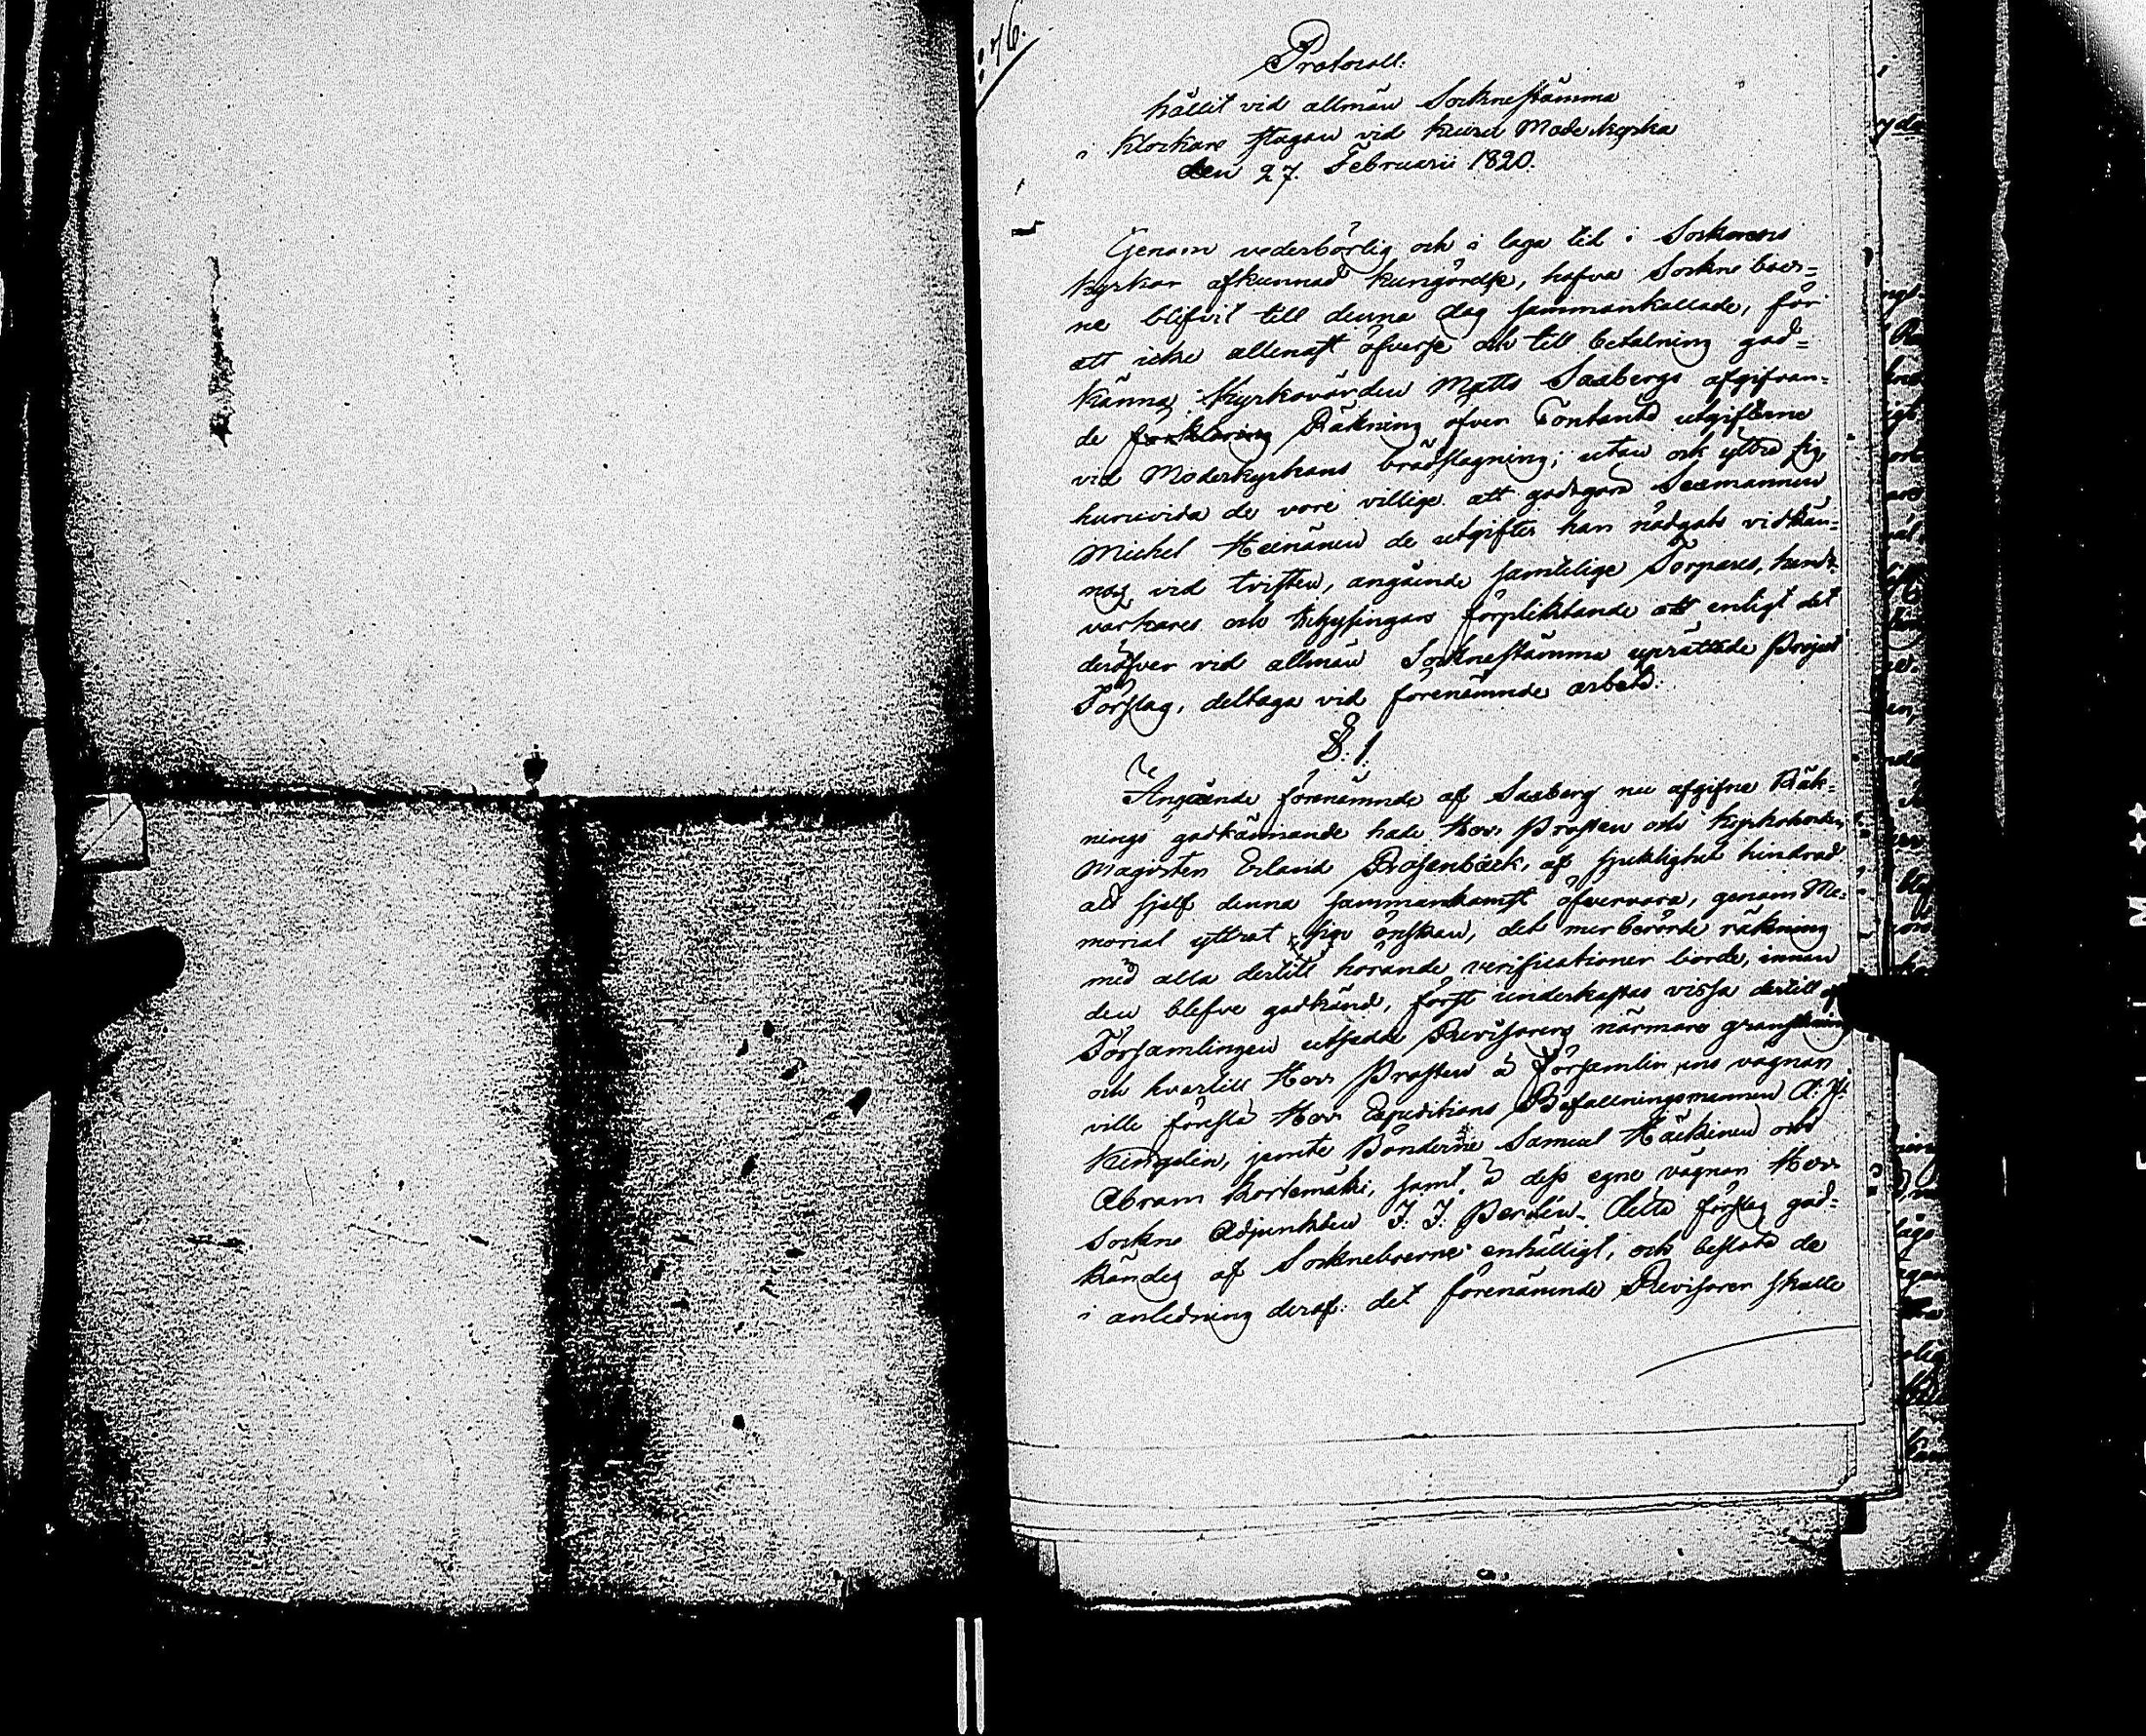 :76.
Protocoll:
hållit vid allmän Socknestämma
i Klockare stugan vid Moderkyrka
den 27. Februarii 1820.
Genom vederbörlig och i laga tid i Sockenens
kyrkor afkunnad kungörelse, hafva Sockneboer=
ne blifvit till denna dag sammankallade, för
att icke allenast öfverse och till betalning god=
känna Kyrkovärden Matts Saxbergs afgifvan=
de förklaring Räkning öfver Contanta utgifterne
vid Moderkyrkans brädslagning; utan ock yttra sig,
huruvida de vore villige att godtgöra Sexmannen
Michel Heinänen de utgifter han nödgats vidkän=
nas vid tvisten, angående samtelige Torpares, handt
varkares och Inhysingars förpliktande att enligt det
deröfver vid allmän Socknestämma uprättade
Förslag, deltaga vid förenämnde arbete.
§. 1.
Angående förenämnde af Saxberg nu afgifne Räk=
nings godkännande hade Herr Prosten och Kyrkoherden,
Magistern Erland Rosenback, af sjuklighet hindrad
att sjelf denna sammankomst öfvervara, genom Me=
morial yttrat sin önskan, det merberörde räkning
med alla dertill hörande verificationer borde, innan
den blefve godkänd, först underkastas vissa dertill af
Församlingen utsedde Revisorers närmare granskning
och hvartill Herr Prosten å Församlingens vägnar
ville föreslå Herr Expeditions Befallningsmannen A. H.
Kingelin, jemte Bönderne Samuel Häckinen och
Abram Kortemäki, samt å dess egne vägnar Herr
Sockne Adjunkten J. J. Perdén. Detta förslag god=
kändes af Sockneboerne enhälligt, och beslöto de
i anledning deraf: det förenämnde Revisorer skulle